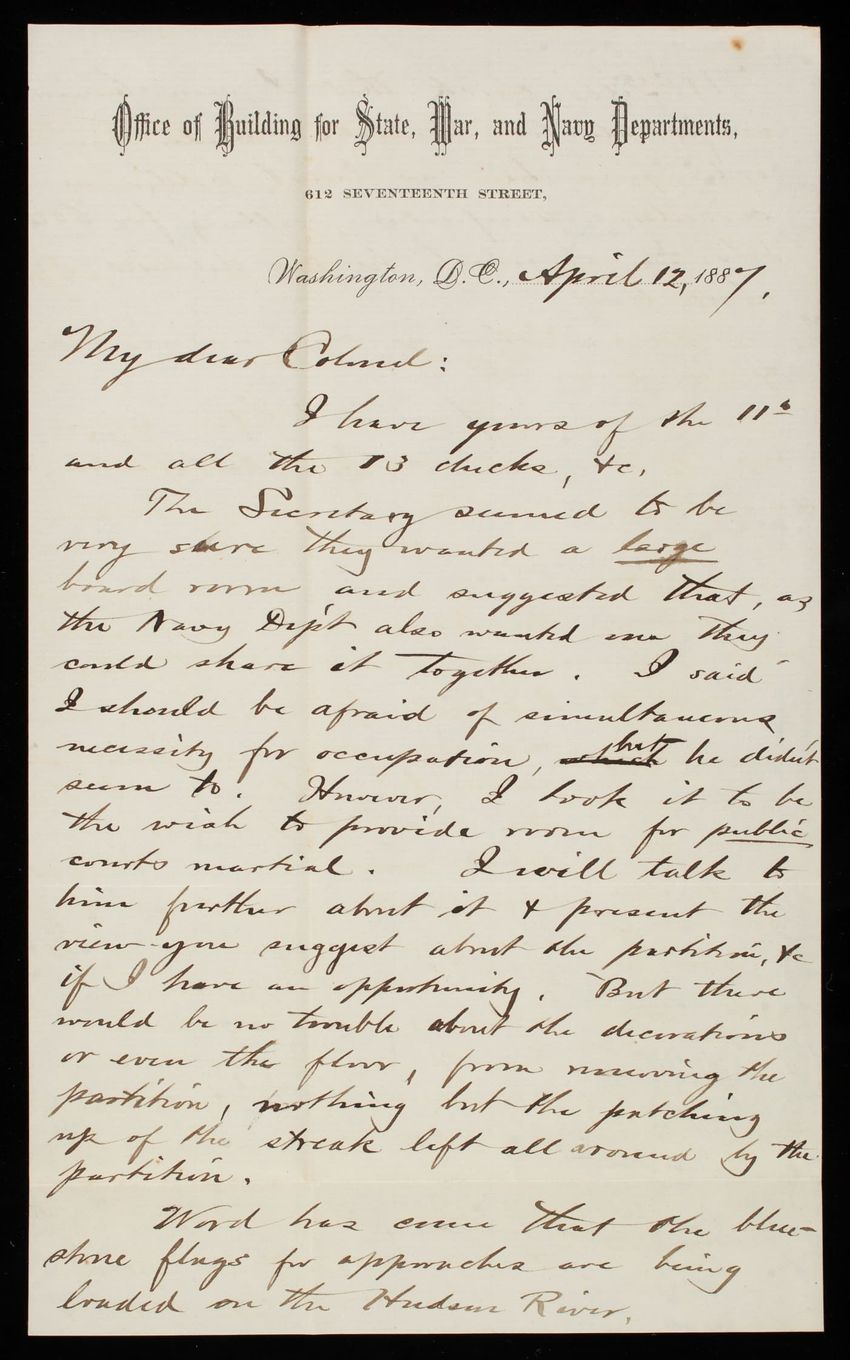 Office of Building for State, War, and Navy Departments,
612 SEVENTEENTH STREET,
Washington, D.C., April 12, 1887.
My dear Colonel:
I have yours of the 11th
and all the 13 checks, &c.
The Secretary seemed to be
very sure they wanted a large
board room and suggested that, as
the Navy Dep't also wanted one they
could share it together. I said
I should be afraid of simultaneous
necessity for occupation, which but he didn't
seem to. However, I took it to be
the wish to provide room for public
courts martial. I will talk to
him further about it & present the
view you suggest about the partition, &c
if I have an opportunity. But there
would be no trouble about the decorations
or even the floor, from removing the
partition, nothing but the patching
up of the streak left all around by the
partition.
Word has come that the blue-
stone flags for approaches are being
loaded on the Hudson River.